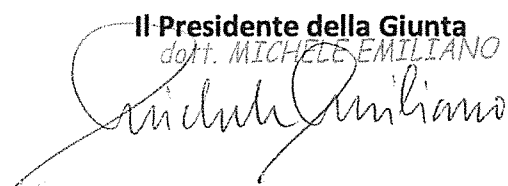 Il Presidente della Giunta
dott. MICHELE EMILIANO
Michele Emiliano